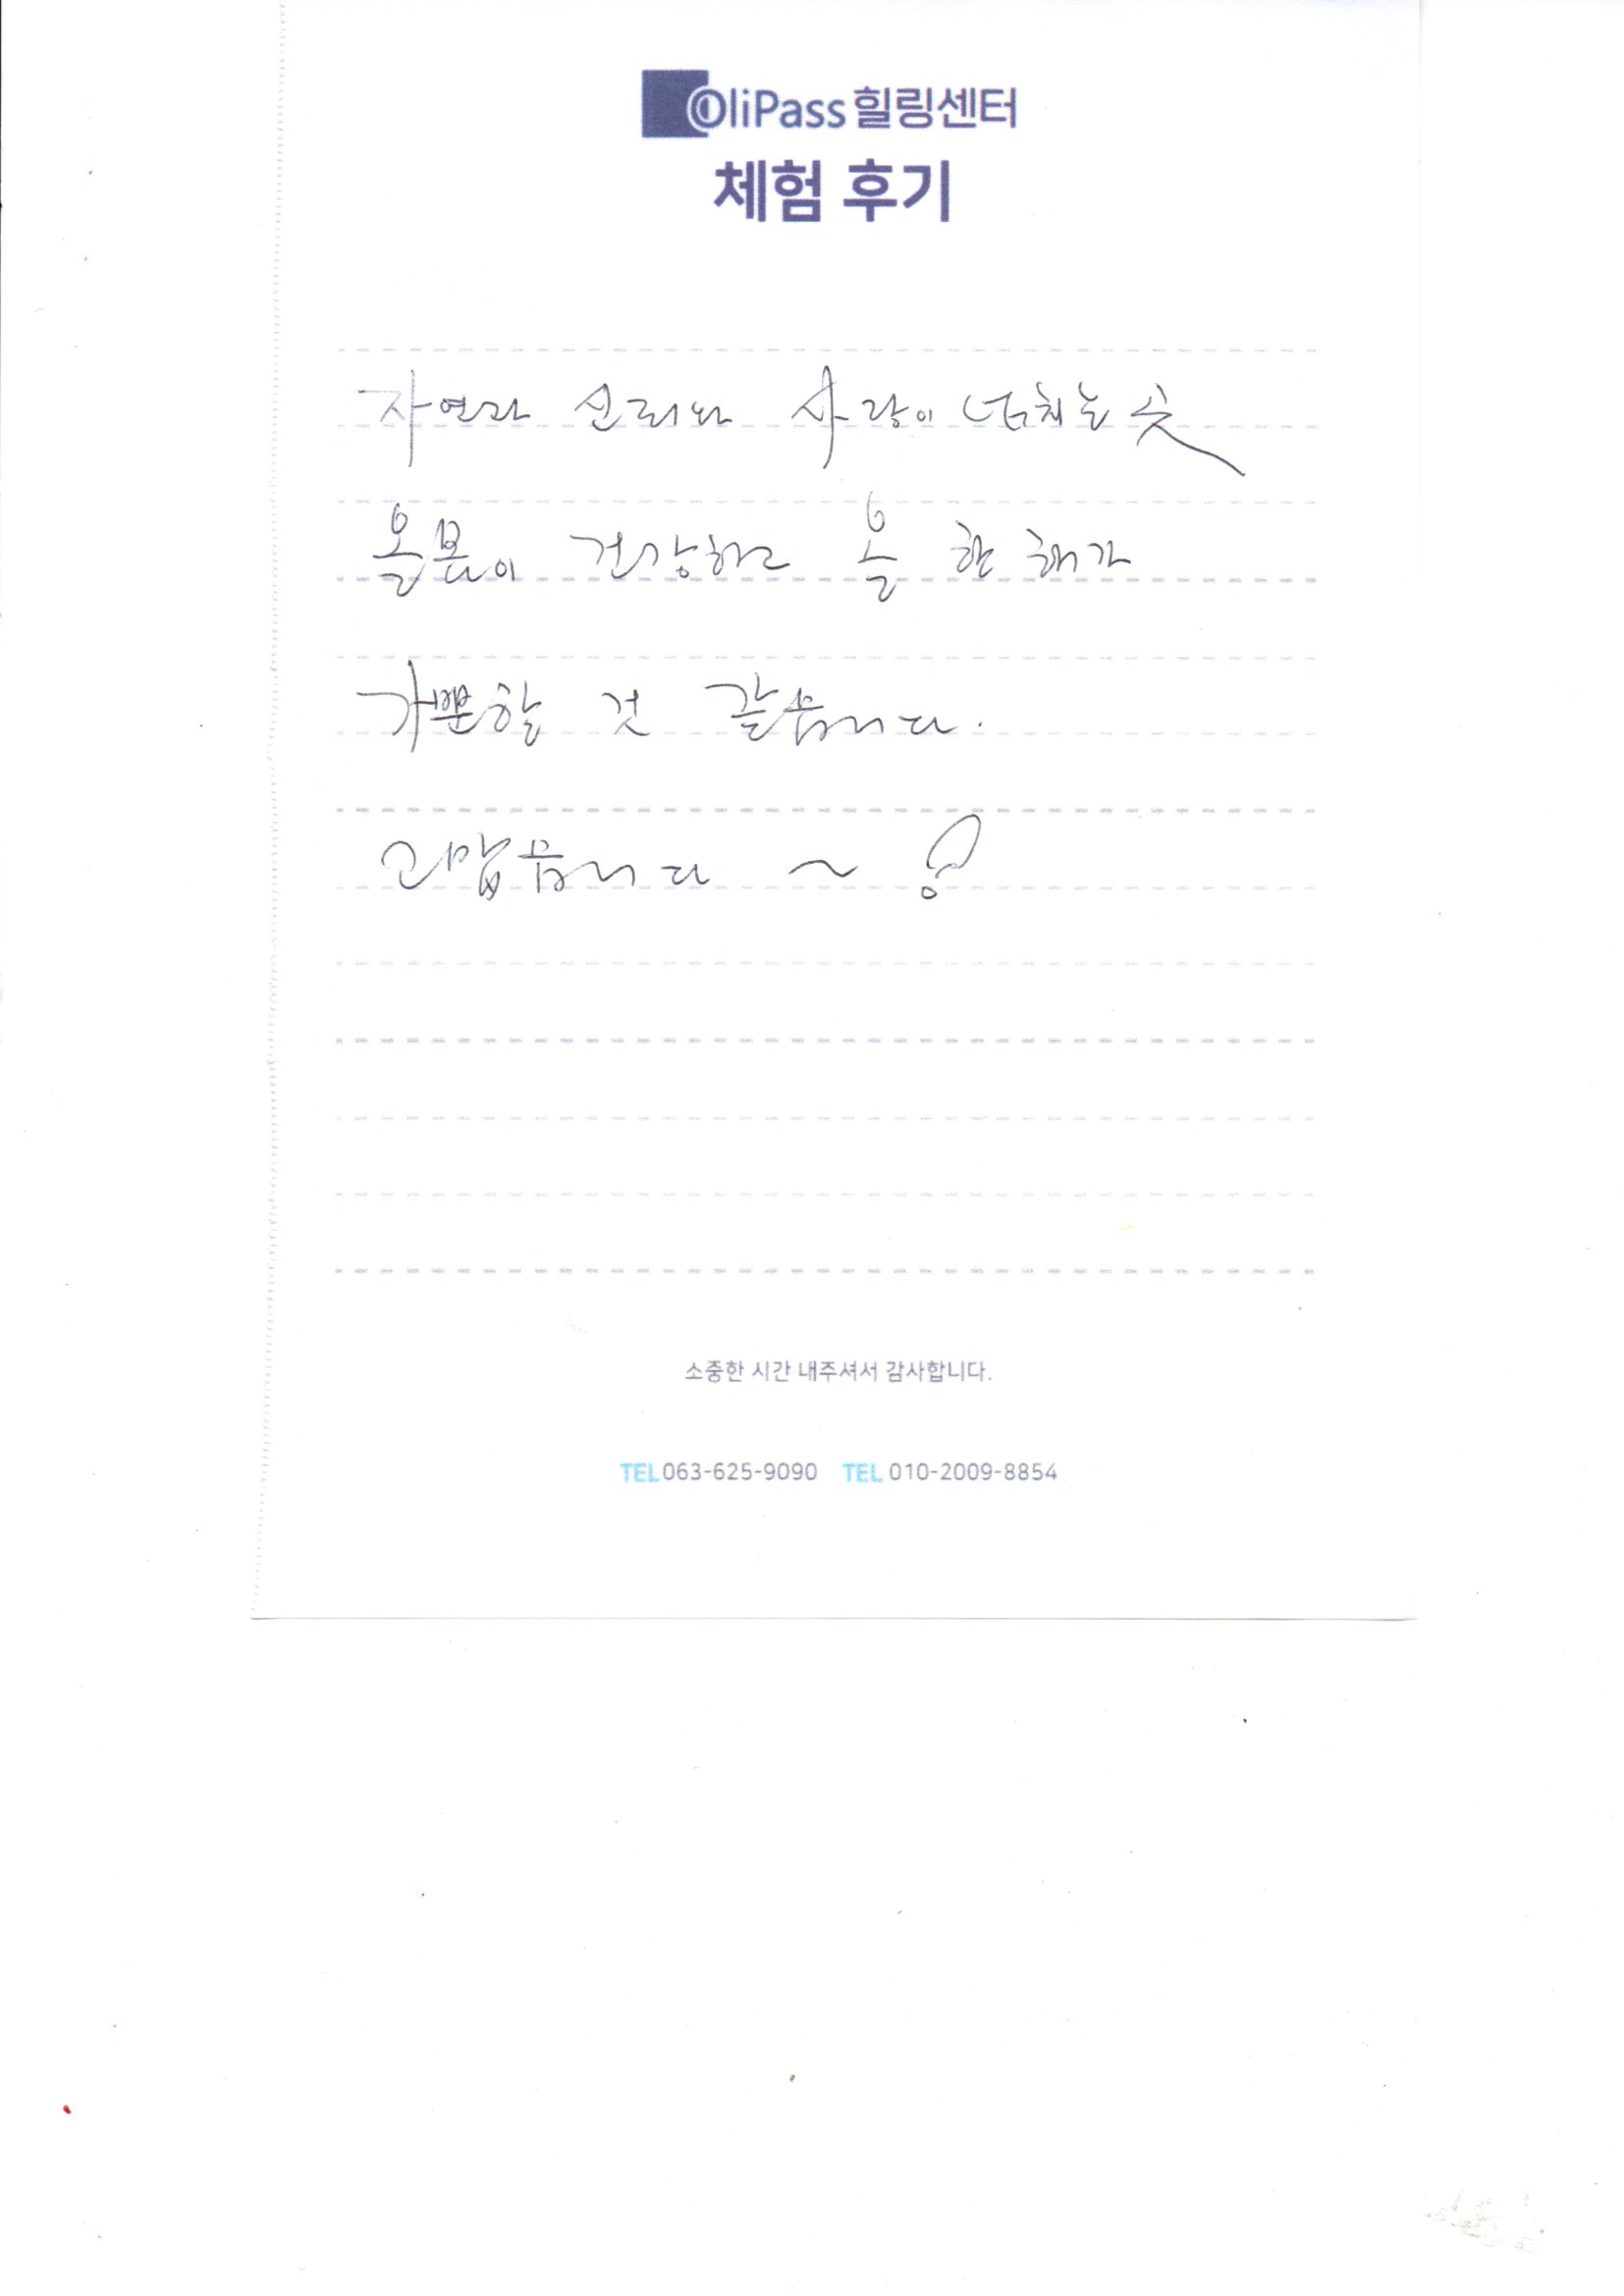 OliPass 힐링센터
체험 후기
자연과 순리와 사랑이 넘치는 곳
온몸이 건강하고 올 한 해가
가뿐할 것 같습니다.
고맙습니다 ~ !
소중한 시간 내주셔서 감사합니다.
TEL 063-625-9090 TEL 010-2009-8854